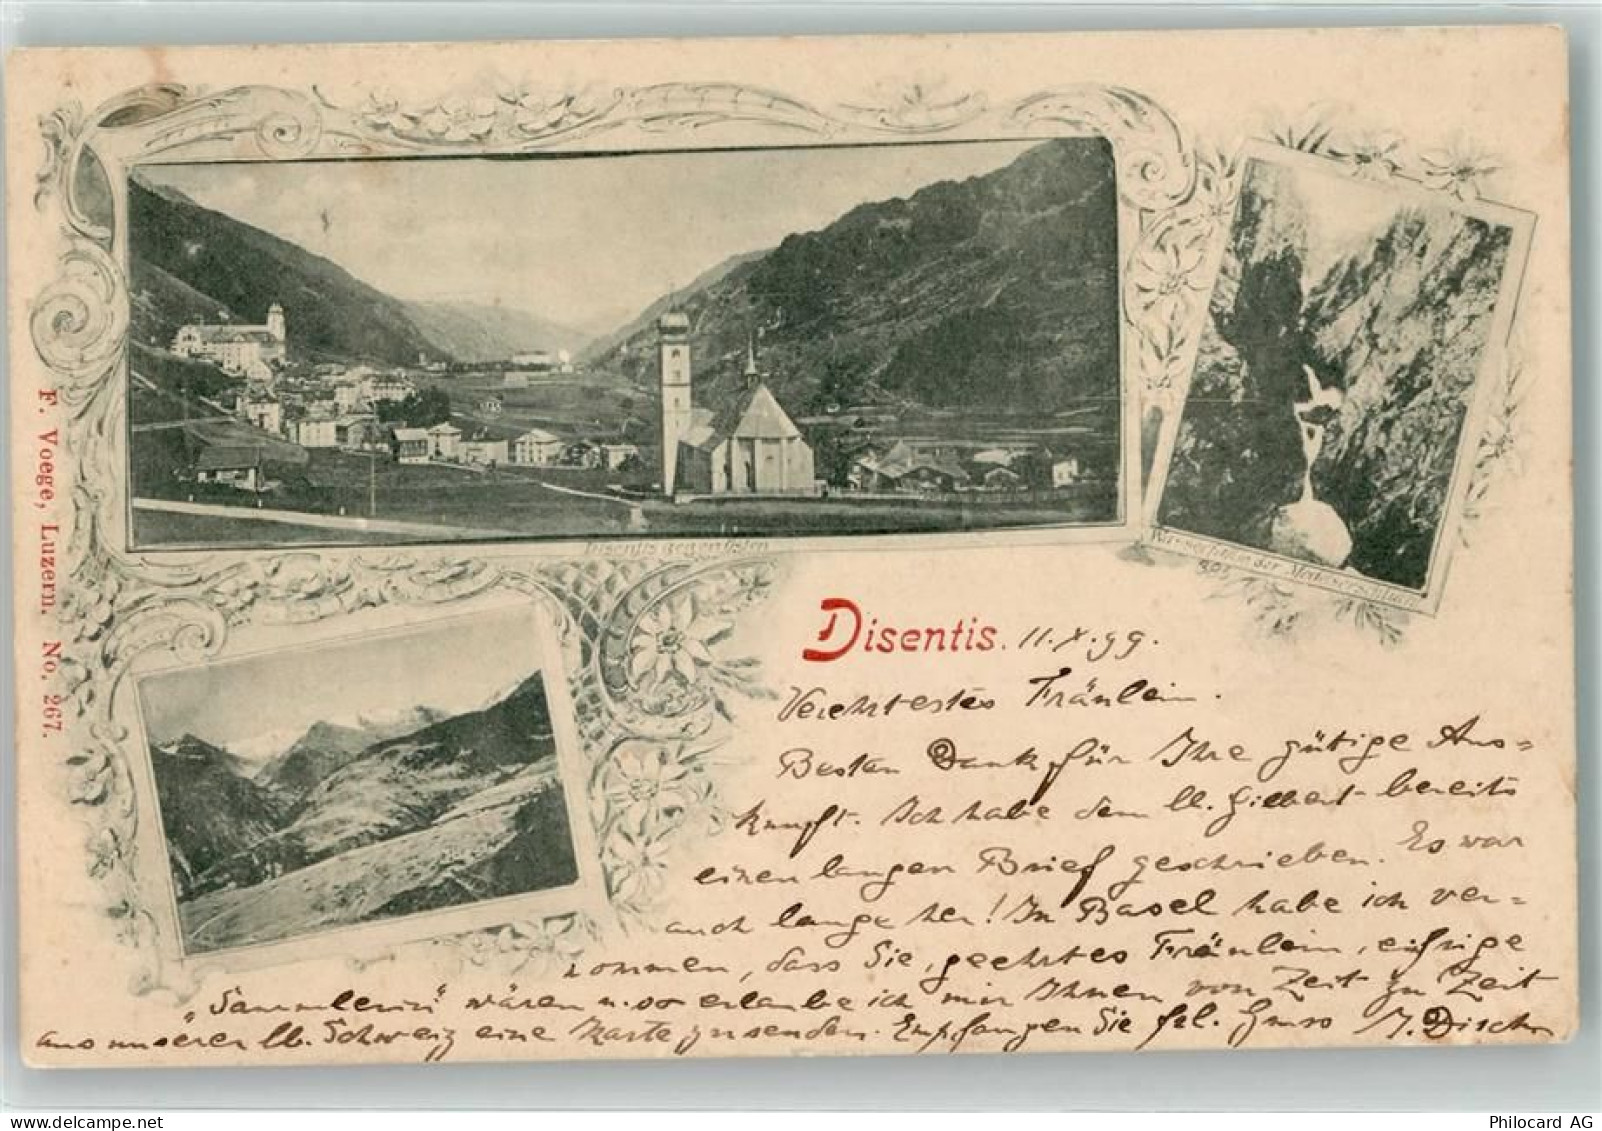 F. Voege, Luzern. No. 267.
Disentis gegen Osten
Disentis. 11.X.99.
Verehrtestes Fräulein.
Besten Dank für Ihre gütige Aus=
kunft. Ich habe dem lb. Gilbert bereits
einen langen Brief geschrieben. Es war
auch lange her! In Basel habe ich ver=
nommen, dass Sie, geehrtes Fräulein, eifrige
„Sammlerin" wären u. so erlaube ich mir Ihnen von Zeit zu Zeit
aus unserer lb. Schweiz eine Karte zu senden. Empfangen Sie frl. Gruss J.
Philocard AG